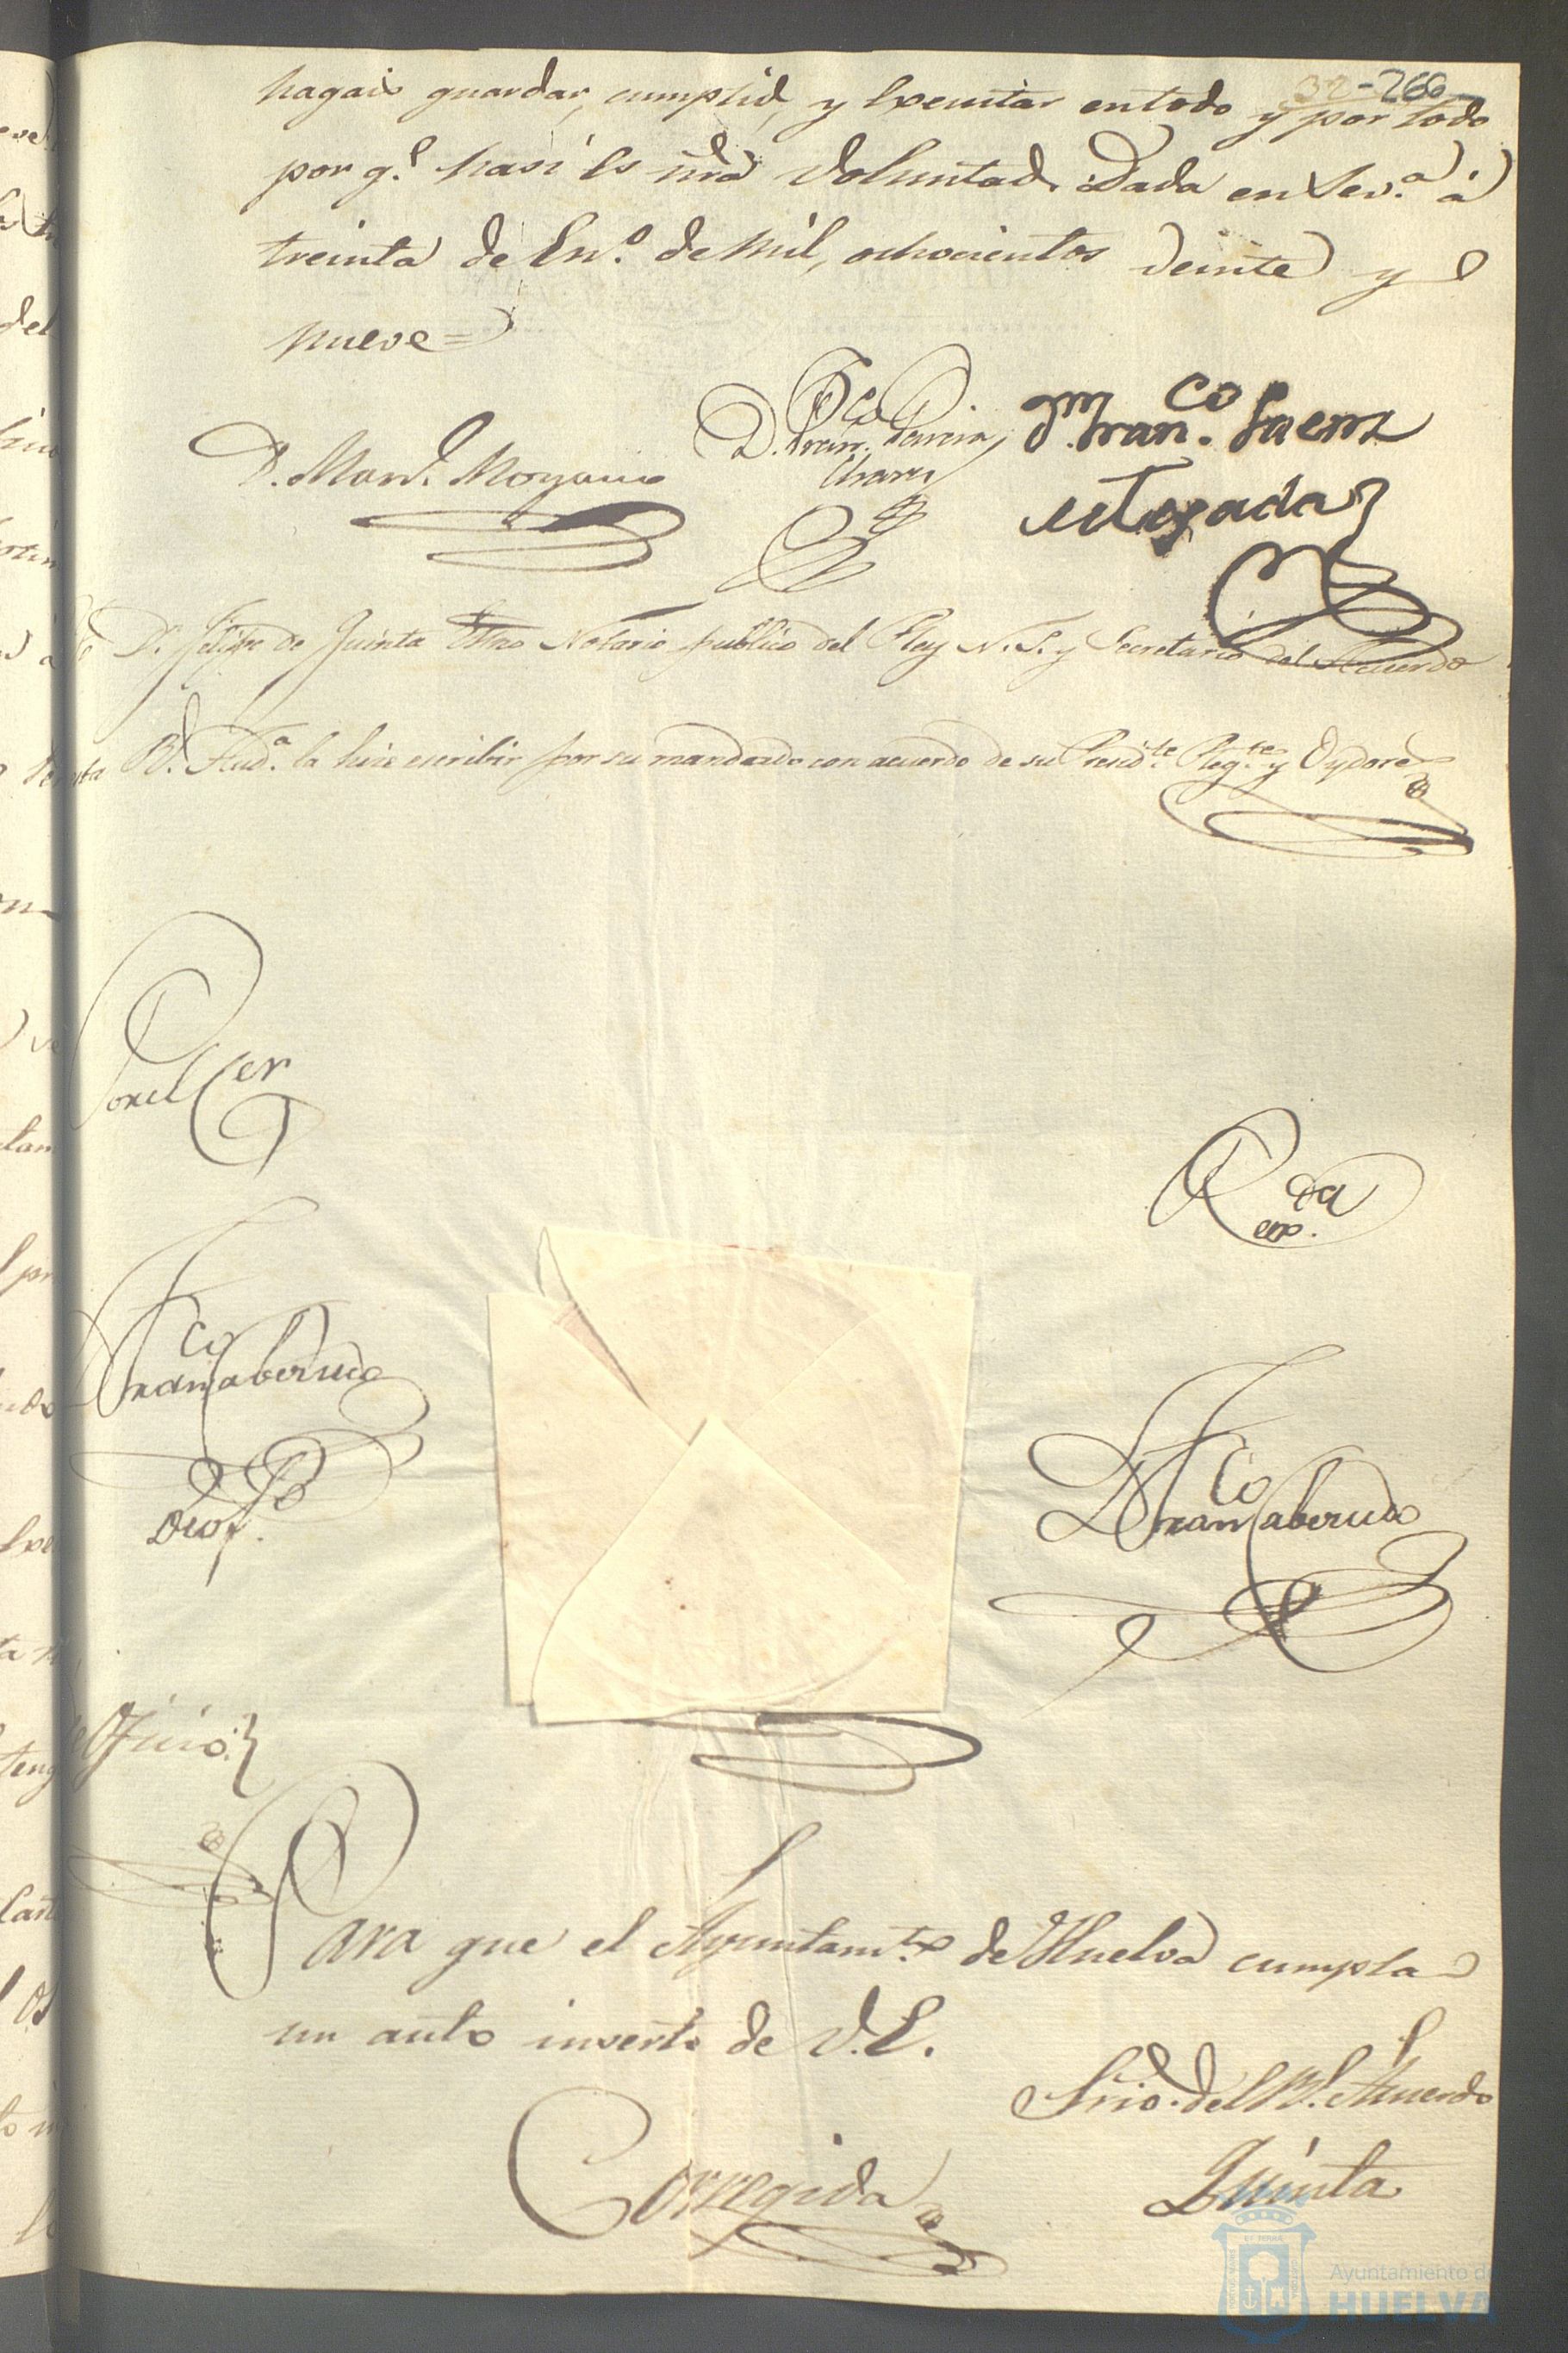 32-266
hagais guardar, cumplid, y Executar en todo y por todo
por q.e hasi Es nrã Voluntad. Dada en Sev.a á
treinta de En.o de Mil, ochocientos Veinte y
nueve=
D. Man.l Moyano
D. Fran.co Garcia
Chaves
Dn. Fran.co Saenz
de Texada
Yo Dn. Felipe de Quinta Esno Notario publico del Rey N. S. y Secretario del Acuerdo
Rl. Aud.a la hice escribir por su mandado con acuerdo de su Presid.te Reg.te y Oydores
Por el Cer
R da
Fran.co Caberudo
D. Fran.co Caberudo
Oficio.
Para que el Ayuntam.to de Huelva cumpla
un auto inserto de V.E.
Srio. del Rl. Acuerdo
Corregida
Quinta
Ayuntamiento de
HUELVA